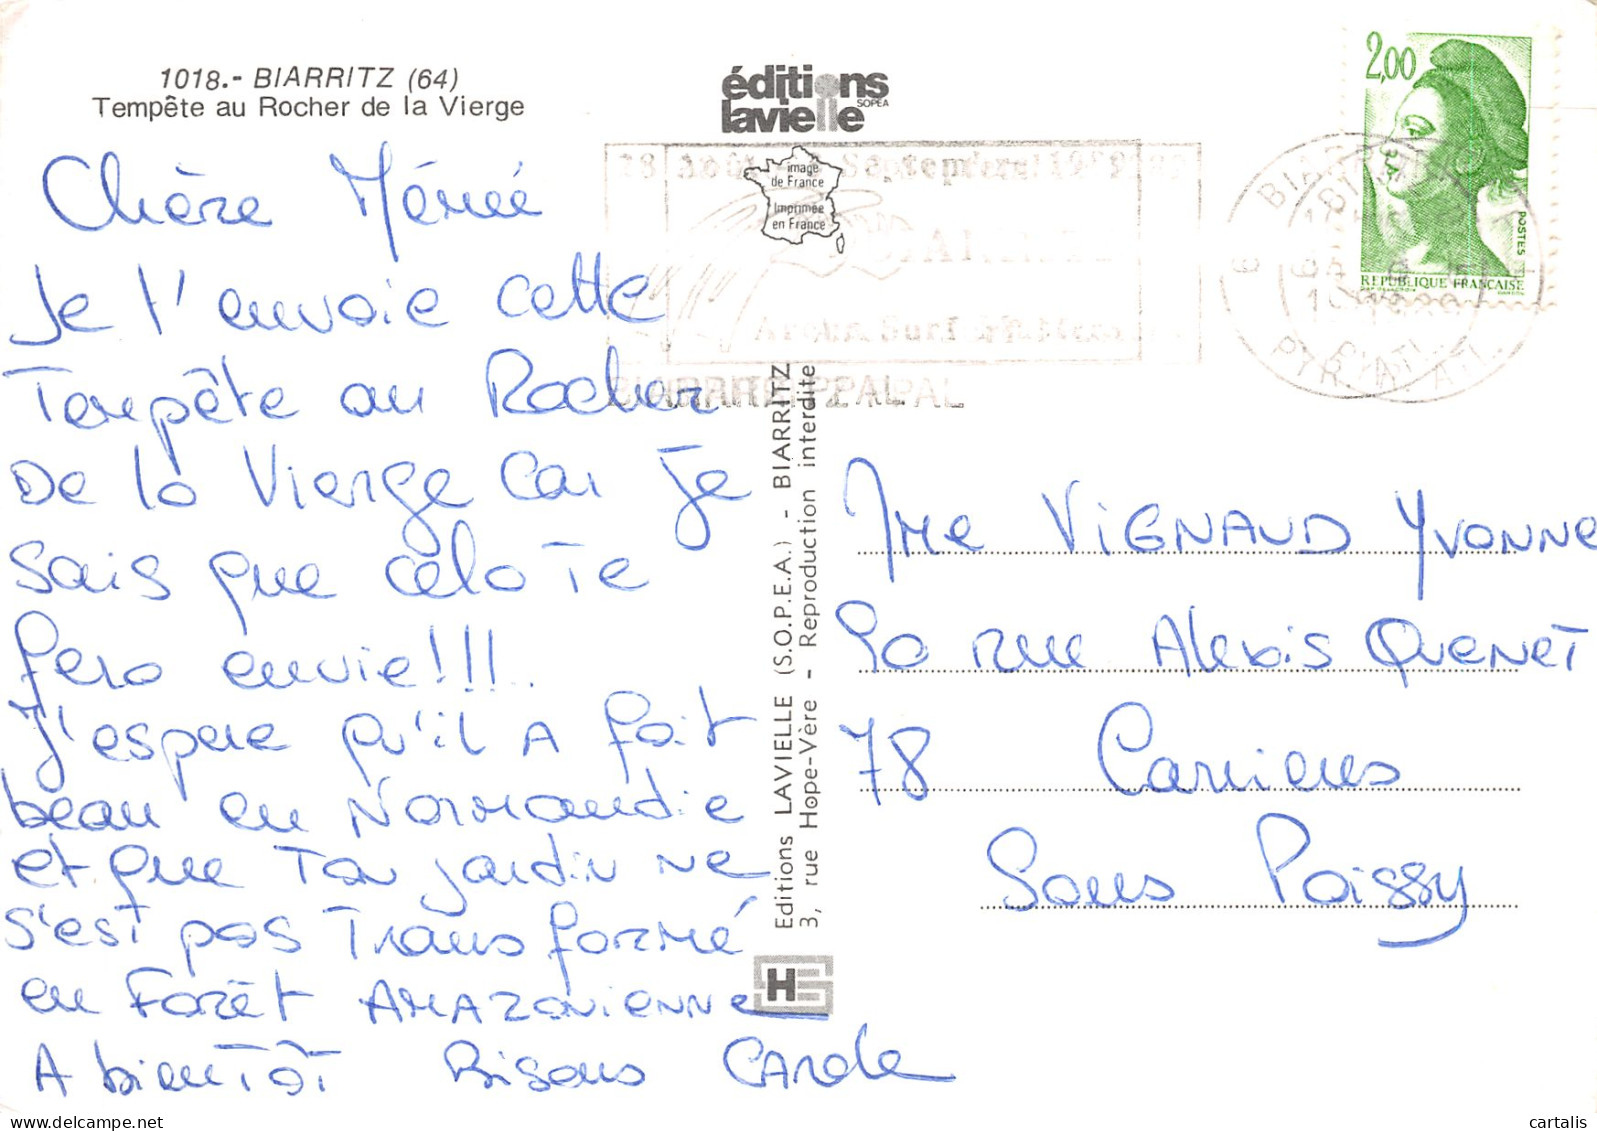 1018.- BIARRITZ (64)
Tempête au Rocher de la Vierge
éditions
lavielle
SOPEA
image
de France
Imprimée
en France
2,00
POSTES
REPUBLIQUE FRANÇAISE
BIARRITZ PPAL
Chère Mémée
Je t'envoie cette
Tempête au Rocher
De la Vierge car je
sais que cela te
fera envie!!!
J'espere qu'il a fait
beau en Normandie
et que ton jardin ne
s'est pas transformé
en Forêt AMAZONIENNE
A bientôt Bisous Carole
Editions LAVIELLE (S.O.P.E.A.) - BIARRITZ
3, rue Hope-Vère - Reproduction interdite
Mme VIGNAUD YVONNE
90 rue Alexis Quenet
78 Carrieres
Sous Poissy
cartalis